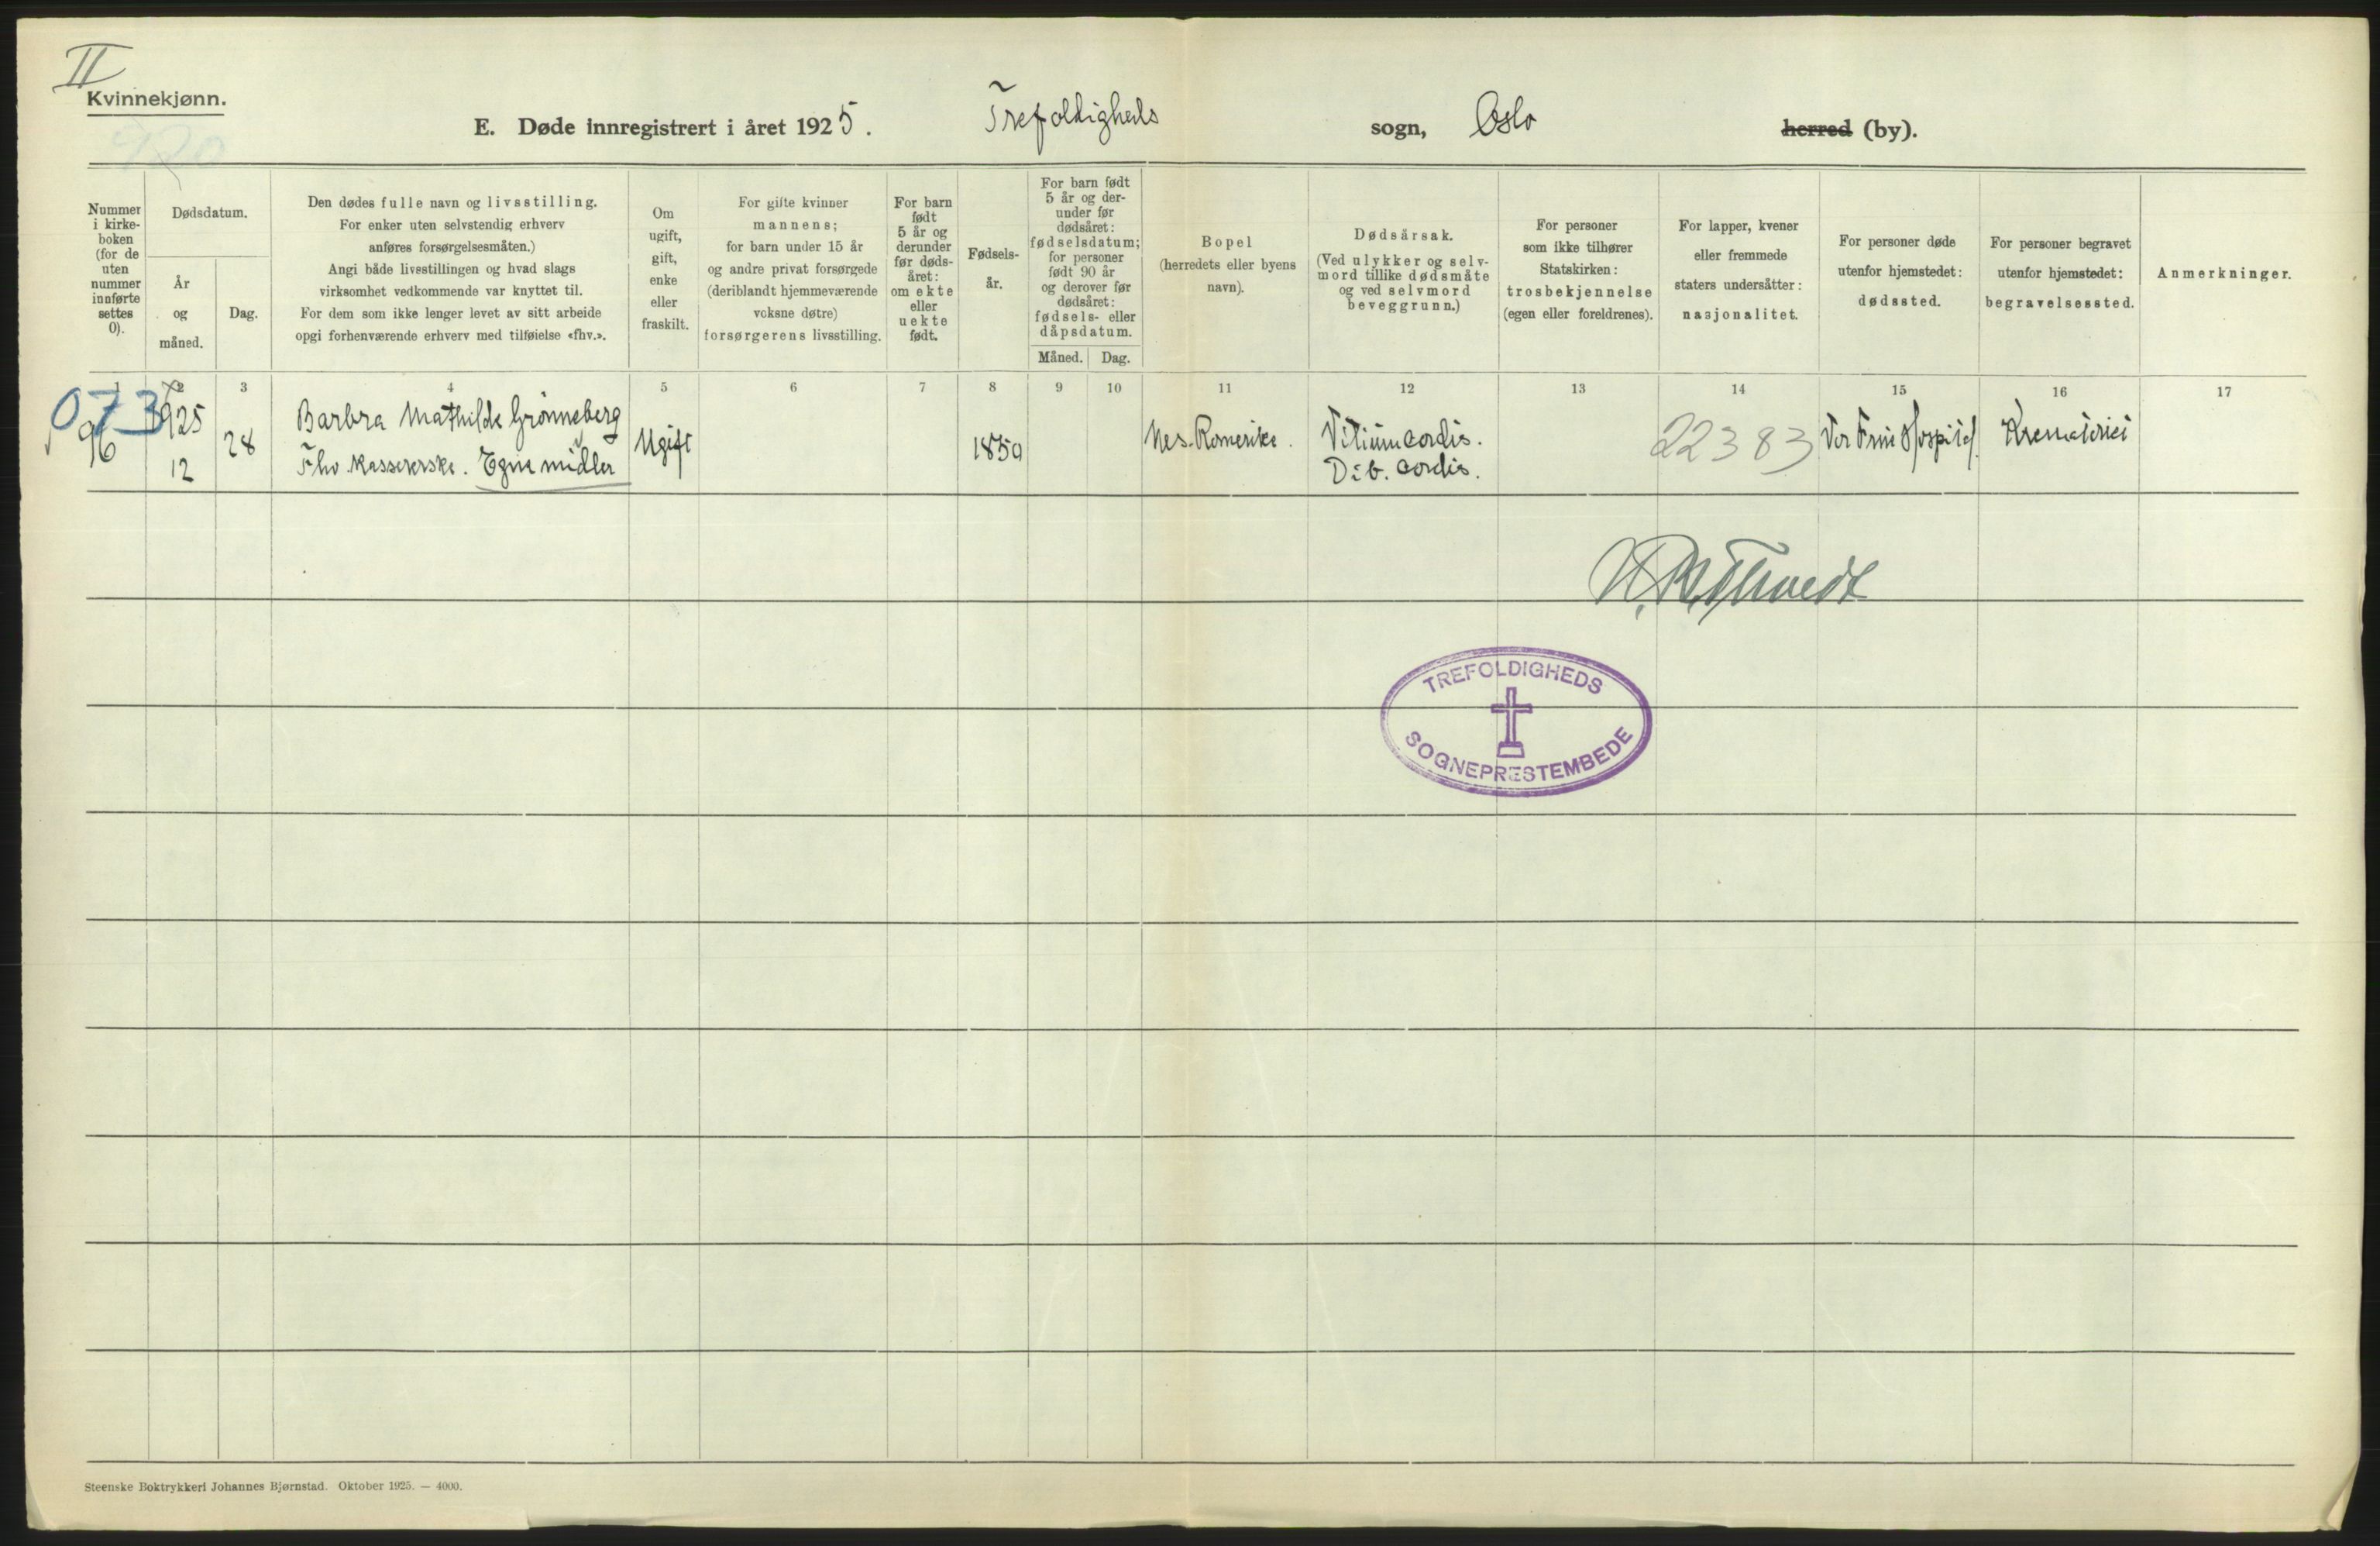 II
Kvinnekjønn.
920
E. Døde innregistrert i året 1925. Trefoldigheds sogn, Oslo herred (by).
Nummer i kirke-boken (for de uten nummer innførte settes 0).
Dødsdatum.
År og måned.
Dag.
Den dødes fulle navn og livsstilling.
For enker uten selvstendig erhverv
anføres forsørgelsesmåten.)
Angi både livsstillingen og hvad slags
virksomhet vedkommende var knyttet til.
For dem som ikke lenger levet av sitt arbeide
opgi forhenværende erhverv med tilføielse «fhv.».
Om ugift, gift, enke eller fraskilt.
For gifte kvinner
mannens;
for barn under 15 år
og andre privat forsørgede
(deriblandt hjemmeværende
voksne døtre)
forsørgerens livsstilling.
For barn født 5 år og derunder før døds-året: om ekte eller uekte født.
Fødsels-år.
For barn født
5 år og der-
under før
dødsåret:
fødselsdatum;
for personer
født 90 år
og derover før
dødsåret:
fødsels- eller
dåpsdatum.
Måned. Dag.
Bopel
(herredets eller byens
navn).
Dødsårsak.
(Ved ulykker og selv-
mord tillike dødsmåte
og ved selvmord
beveggrunn.)
For personer
som ikke tilhører
Statskirken:
trosbekjennelse
(egen eller foreldrenes).
For lapper, kvener
eller fremmede
staters undersåtter:
nasjonalitet.
For personer døde
utenfor hjemstedet:
dødssted.
For personer begravet
utenfor hjemstedet:
begravelsessted.
Anmerkninger.
1 2 3 4 5 6 7 8 9 10 11 12 13 14 15 16 17
073
96 1925 12 28
Barbra Mathilde Grønneberg
Fhv. Kassererske. Egne midler
Ugift 1859 Nes. Romerike.
Vitium cordis.
Deb. cordis.
22383 Vor Frue Hospital Krematoriet
TREFOLDIGHEDS
SOGNEPRESTEMBEDE
Steenske Boktrykkeri Johannes Bjørnstad. Oktober 1925. — 4000.